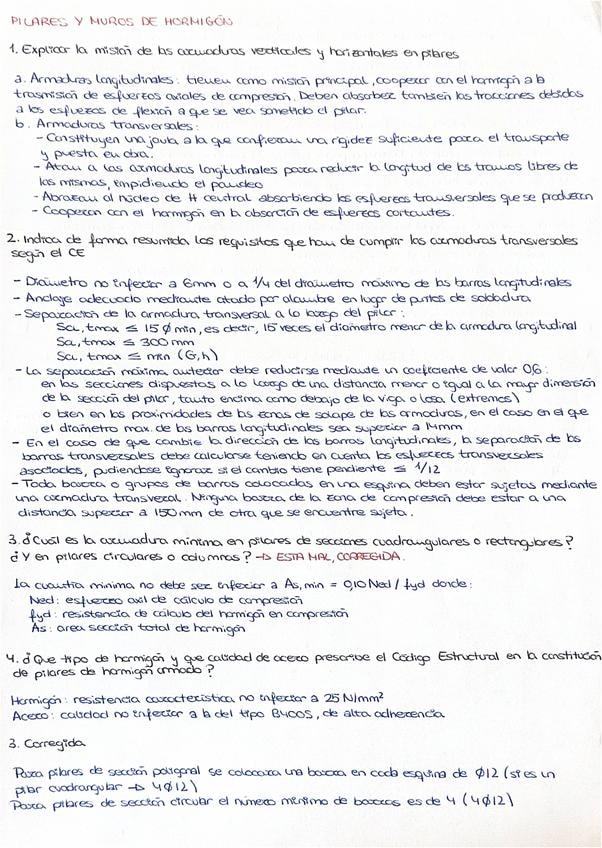 PILARES Y MUROS DE HORMIGÓN
1. Explicar la misión de las armaduras verticales y horizontales en pilares
a. Armaduras longitudinales: tienen como misión principal, cooperar con el hormigón a la
trasmisión de esfuerzos axiales de compresión. Deben absorber también las tracciones debidas
a los esfuerzos de flexión a que se vea sometido el pilar.
b. Armaduras transversales:
- Constituyen una jaula a la que confieran una rigidez suficiente para el transporte
y puesta en obra.
- Atan a las armaduras longitudinales para reducir la longitud de los tramos libres de
las mismas, impidiendo el pandeo
- Abrazan al núcleo de H central absorbiendo los esfuerzos transversales que se produzcan
- Cooperan con el hormigón en la absorción de esfuerzos cortantes.
2. Indica de forma resumida los requisitos que han de cumplir las armaduras transversales
según el CE
- Diámetro no inferior a 6mm o a 1/4 del diámetro máximo de las barras longitudinales
- Anclaje adecuado mediante atado por alambre en lugar de puntos de soldadura
- Separación de la armadura transversal a lo largo del pilar:
Scl,tmax ≤ 15 Ø min, es decir, 15 veces el diametro menor de la armadura longitudinal
Scl,tmax ≤ 300 mm
Scl,tmax ≤ min (b,h)
- La separación máxima anterior debe reducirse mediante un coeficiente de valor 0,6:
en las secciones dispuestas a lo largo de una distancia menor o igual a la mayor dimensión
de la sección del pilar, tanto encima como debajo de la viga o losa (extremos)
o bien en las proximidades de las zonas de solape de las armaduras, en el caso en el que
el diámetro max. de las barras longitudinales sea superior a 14mm
- En el caso de que cambie la dirección de las barras longitudinales, la separación de las
barras transversales debe calcularse teniendo en cuenta los esfuerzos transversales
asociados, pudiendose ignorar si el cambio tiene pendiente ≤ 1/12
- Toda barra o grupos de barras colocadas en una esquina deben estar sujetas mediante
una armadura transversal. Ninguna barra de la zona de compresión debe estar a una
distancia superior a 150mm de otra que se encuentre sujeta.
3. ¿Cuál es la armadura mínima en pilares de secciones cuadrangulares o rectangulares?
¿Y en pilares circulares o columnas? → ESTA MAL, CORREGIDA.
La cuantía mínima no debe ser inferior a As,min = 0,10 Ned / fyd donde:
Ned: esfuerzo axil de cálculo de compresión
fyd: resistencia de cálculo del hormigón en compresión
As: area sección total de hormigón
4. ¿Que tipo de hormigón y que calidad de acero prescribe el Código Estructural en la constitución
de pilares de hormigón armado?
Hormigón: resistencia característica no inferior a 25 N/mm²
Acero: calidad no inferior a la del tipo B400S, de alta adherencia
3. Corregida
Para pilares de sección poligonal se colocara una barra en cada esquina de Ø12 (si es un
pilar cuadrangular → 4Ø12)
Para pilares de sección circular el número mínimo de barras es de 4 (4Ø12)